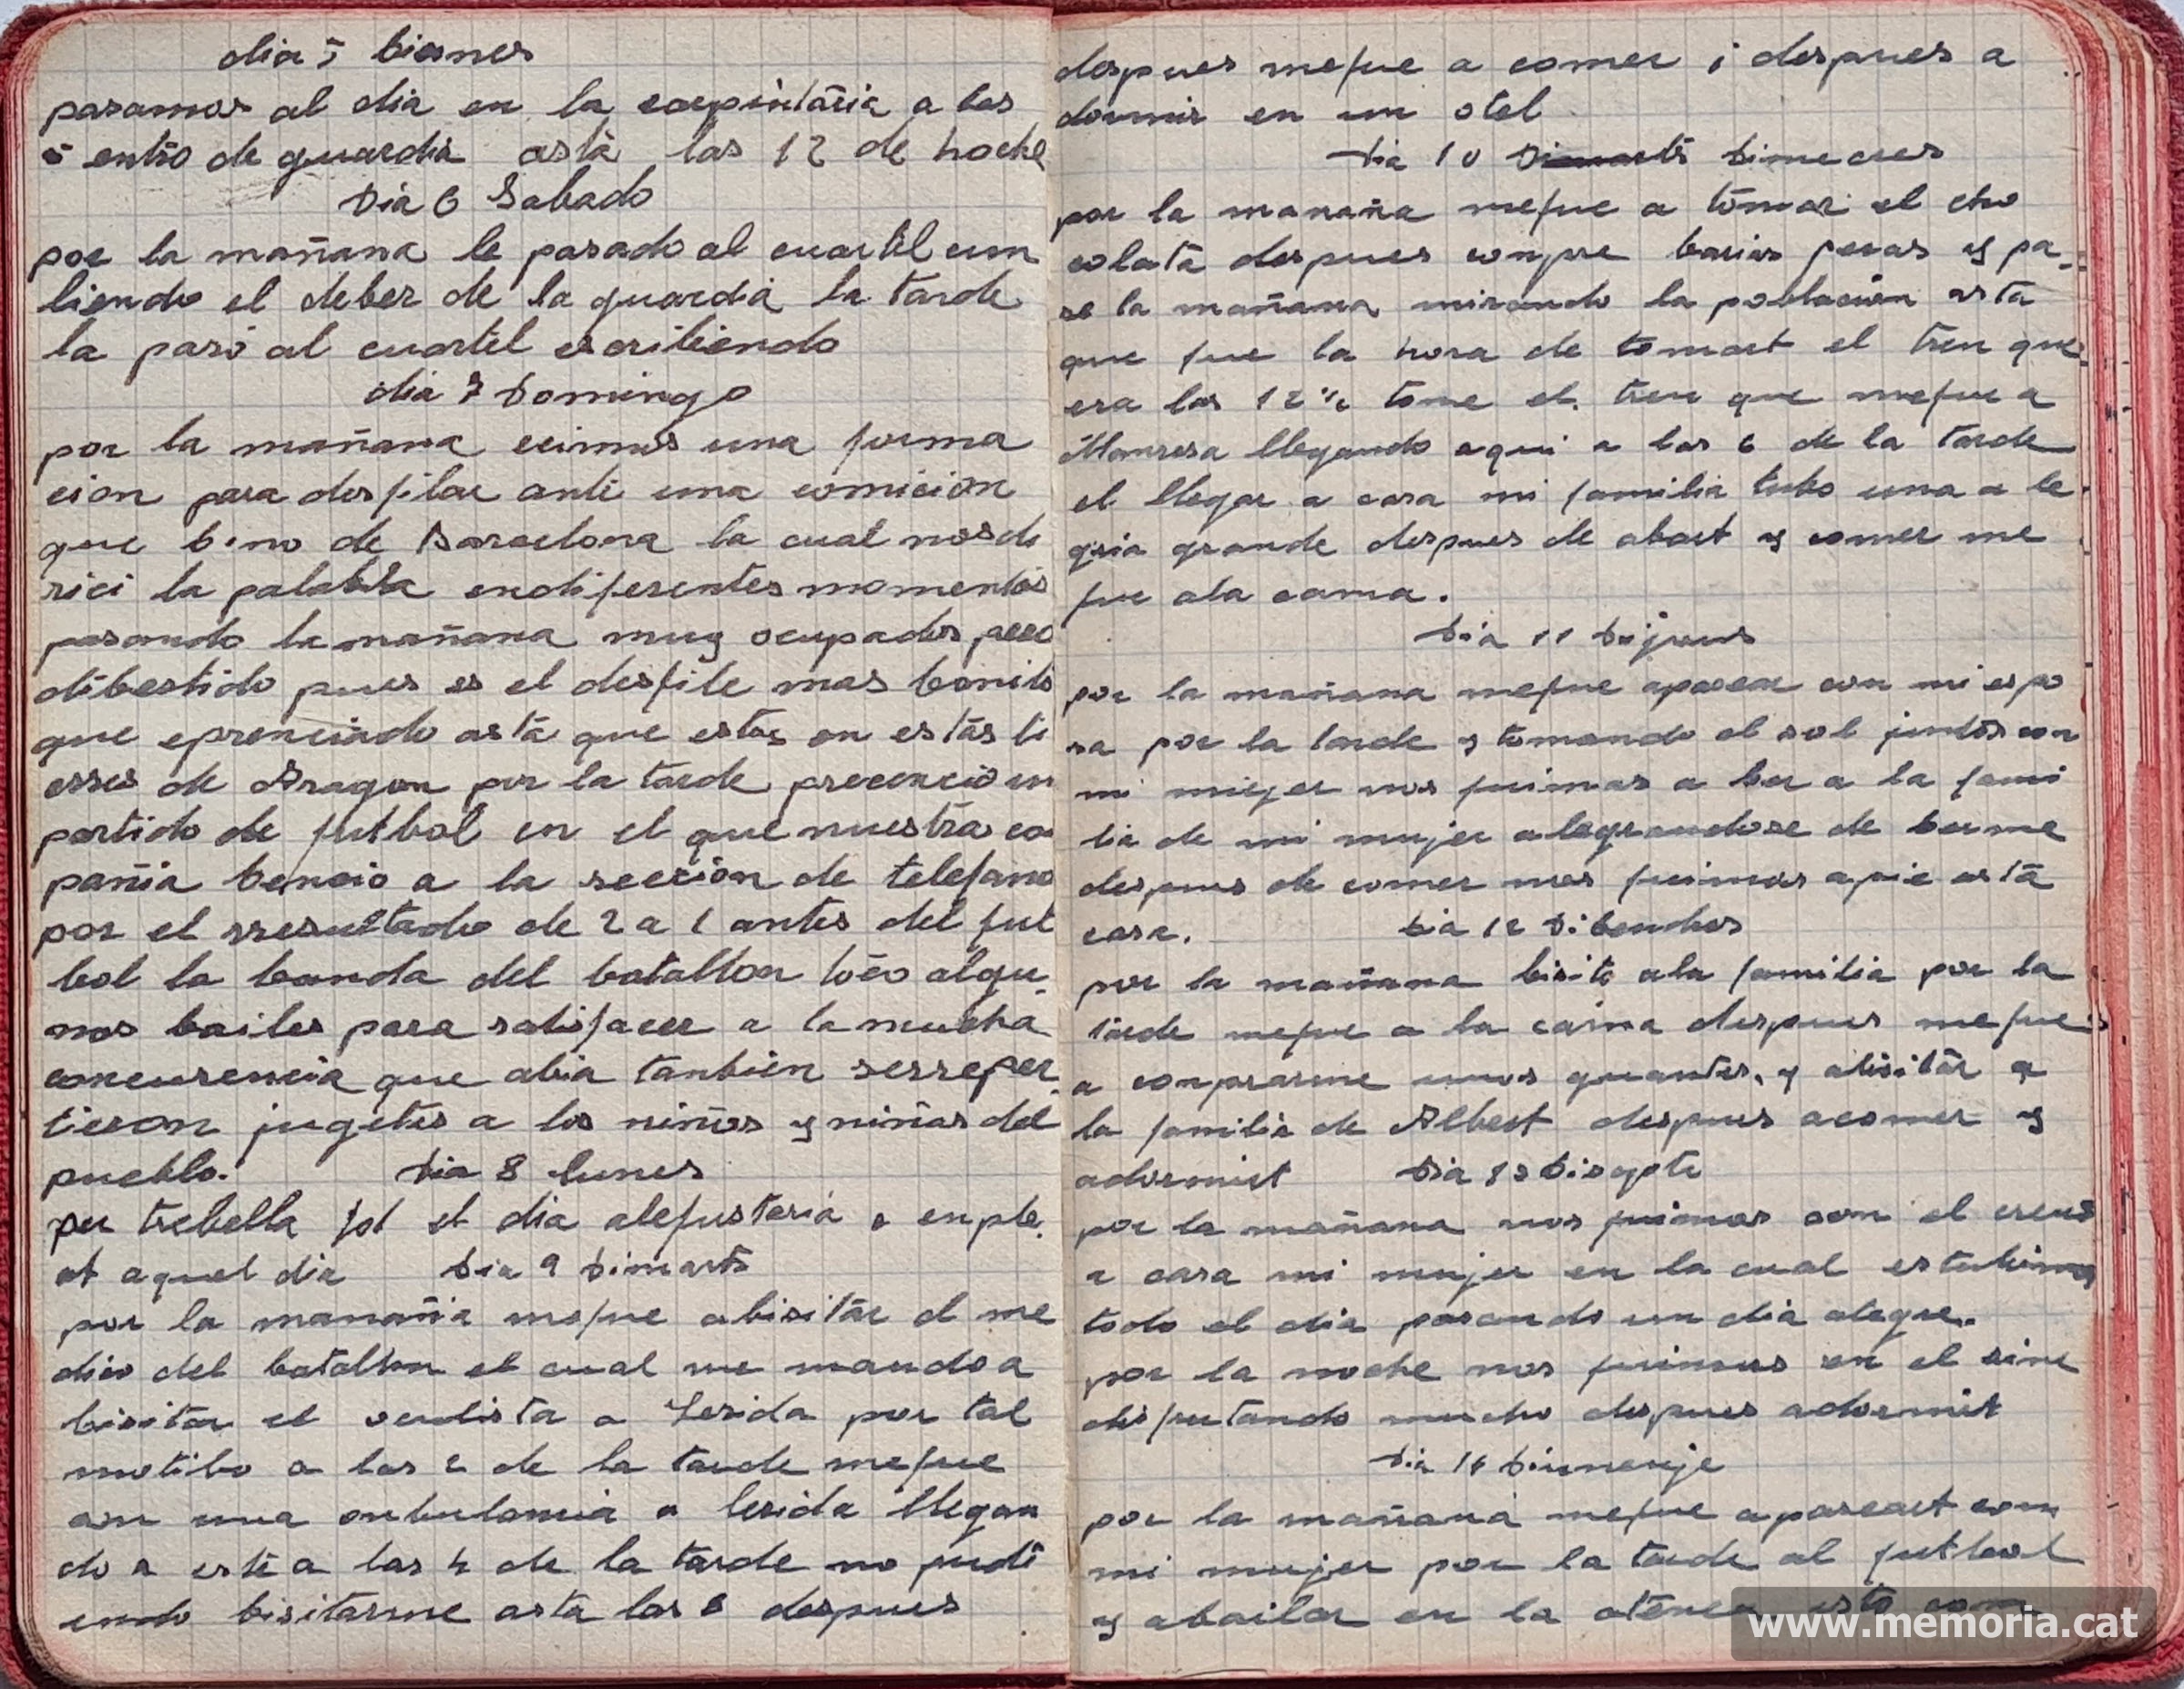 dia 5 biernes
pasamos al dia en la carpinteria a las
5 entro de guardia astà las 12 de noche
Dia 6 Sabado
por la mañana le pasado al cuartel cum
liendo el deber de la guardia la tarde
la pasó al cuartel escribiendo
dia 7 Domingo
por la mañana icimos una forma
cion para desfilar ante una comicion
que bino de Barcelona la cual nos di
rici la palabra endiferentes momentos
pasando la mañana muy ocupados pero
dibertido pues es el desfile mas bonito
que eprenciado astà que estoy en estàs ti
erres de Aragon por la tarde precencio un
partido de futbol en el que nuestra co
pañia bencio a la seccion de telefano
por el rresultado de 2 a 1 antes del fut
bol la banda del batallon toco algu-
nos bailes para satisfacer a la mucha
concurencia que abia tanbien serreper
tieron jugetes a los niños y niñas del
pueblo. Dia 8 lunes
per trebella tot el dia alefusteria e enple-
at aquel dia Dia 9 Dimarts
por la manaña mefue abisitar el me
dico del batallon el cual me mando a
bisitar el oculista a Lerida por tal
motibo a las 2 de la tarde mefue
con una anbulancia a lerida llegan
do a estè a las 4 de la tarde no pudi
endo bisitarme astà las 6 despues
despues mefue a comer i despues a
dormir en un otel
Dia 10 Dimarts Dimecres
por la manaña mefue a tomar el cho
colata despues conpre barias peras y pa-
se la mañana mirando la poblacion astà
que fue la hora de tomart el tren que
era las 12 ½ tome el tren que mefue a
Manresa llegando aqui a las 6 de la tarde
el llegar a casa mi familia tubo una a le
gria grande despues de abart y comer me
fue ala cama.
Dia 11 Dijous
por la mañana mefue apasear con mi espo
sa por la tarde y tomando el sol juntos con
mi mujer nos fuimos a ber a la fami
lia de mi mujer alegrandose de berme
despues de comer nos fuimos apie astà
casa. Dia 12 Dibendres
por la mañana bisite ala familia por la
tarde mefue a la caina despues mefue
a conprarme unos guantes, y abisitàr a
la familia de Albert despues acomer y
adormirt Dia 13 Disapte
por la mañana nos fuimos con el
a casa mi mujer en la cual estubimos
todo el dia pasando un dia alegre.
por la noche nos fuimos en el sine
disfrutando mucho despues adormirt
Dia 14 Diumenje
por la mañana mefue apaseart con
mi mujer por la tarde al futbol
y abailar en la atenea esto con
www.memoria.cat